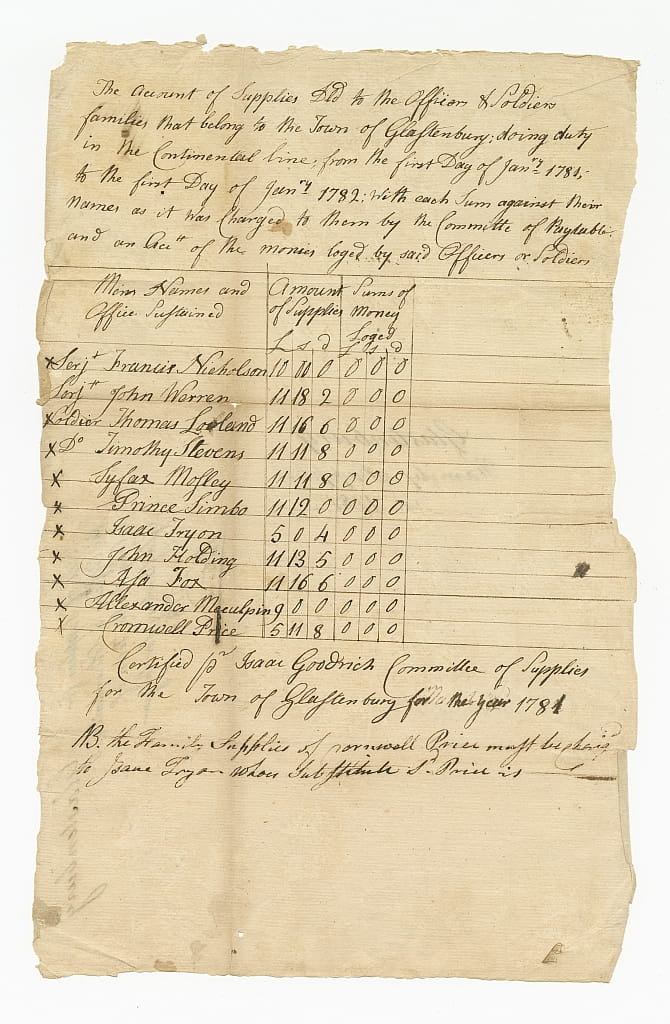 The Account of Supplies Dld to the Officers & Soldiers
families that belong to the Town of Glastenbury; doing duty
in the Continental line; from the first Day of Janry 1781;
to the first Day of Janry 1782: With each Sum against their
Names as it was Charged to them by the Committe of Paytable
and an Acct of the monies loged by said Officers or Soldiers
Mens Names and Office Sustained Amount of Supplies Sums of Money Loged
£ s d £ s d
x Serjt Francis Nicholson 10 10 0 0 0 0
Serjt John Werren 11 18 2 0 0 0
x Soldier Thomas Loveland 11 16 6 0 0 0
x Do Timothy Stevens 11 11 8 0 0 0
x Syfax Mosley 11 11 8 0 0 0
x Prince Simbo 11 12 0 0 0 0
x Isaac Tryon 5 0 4 0 0 0
x John Holding 11 13 5 0 0 0
x Asa Fox 11 16 6 0 0 0
x Allexander Meculpin 9 0 0 0 0 0
x Cromwell Price 5 11 8 0 0 0
Certified pr Isaac Goodrich Committee of Supplies
for the Town of Glastenbury for the year 1781
NB. the Family Supplies of cornwell Price must be
to Isaac Tryon whose Substitute Sd Price is